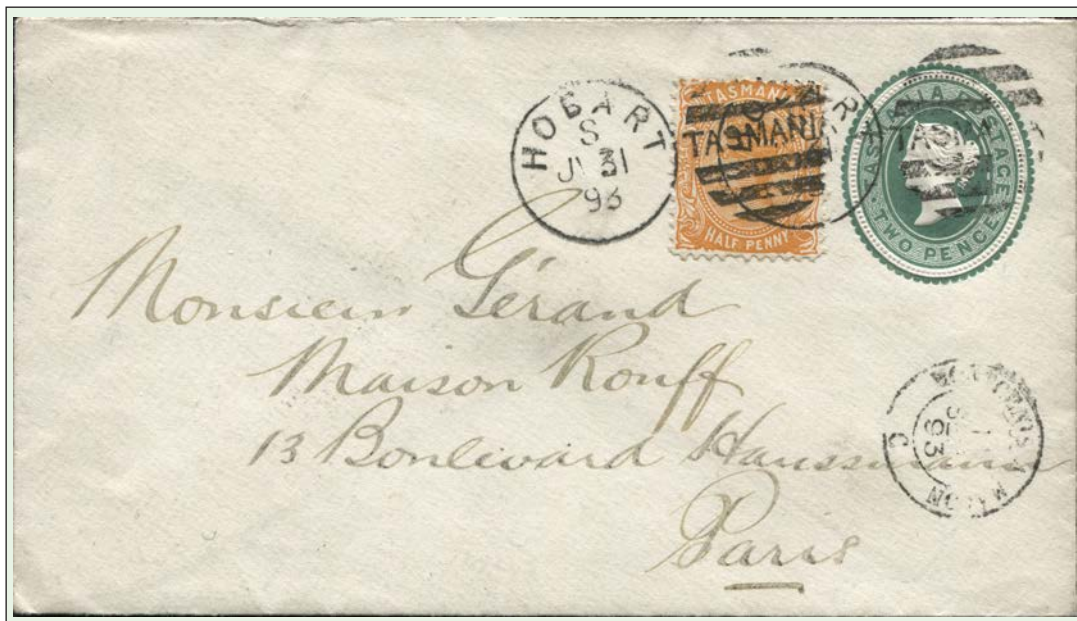 HOBART
S
JY 31
93
TASMANIA
HALF PENNY
TASMANIA POSTAGE
TWO PENCE
TASMAN
Monsieur Gérand
Maison Rouff
13 Boulevard Haussmann
Paris
MACON
93
C